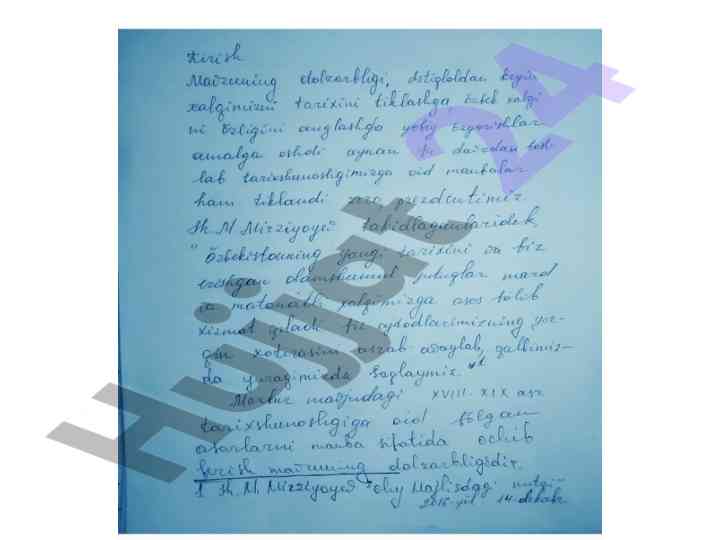 Kirish
Mavzuning dolzarbligi, Istiqloldan keyin
xalqimizni tarixini tiklashga, özbek xalqi
ni özligini anglashga yöliq özgarishlar
amalga oshdi aynan shu davrdan bosh
lab tarixshunosligimizga oid manbalar
ham tiklandi zero, prezdentimiz
Sh. M. Mirziyoyev takidlaganlaridek,
" Özbekistonning yangi tarixini va biz
erishgan olamshumul yutuqlar mard
va matonatli xalqimizga asos bölib
xizmat qiladi biz ajdodlarimizning yor-
qin xotirasini asrab-avaylab, qalbimiz-
da yuragimizda saqlaymiz. "1
Mazkur mavzudagi XVIII-XIX asr
tarixshunosligiga oid bölgan
asarlarni manba sifatida ochib
berish mavzuning dolzarbligidir.
1 Sh. M. Mirziyoyev "Oliy Majlisdagi nutqi"
14-dekabr
Hujjat 24